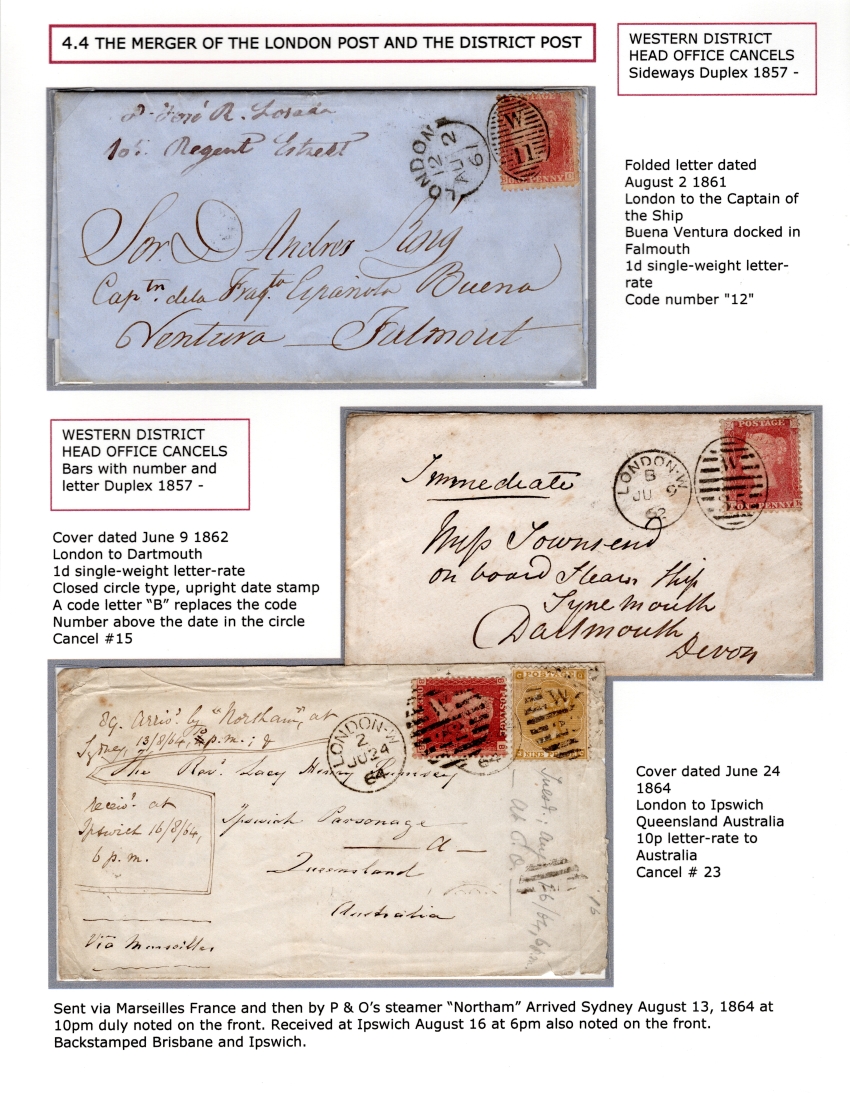 4.4 THE MERGER OF THE LONDON POST AND THE DISTRICT POST
WESTERN DISTRICT
HEAD OFFICE CANCELS
Sideways Duplex 1857 -
Regent Estrett
LONDON
12
AU 2
61
W
11
ONE PENNY
Sor. D Andres
Captn. dela Fragta Española Buena
Ventura — Falmout
Folded letter dated
August 2 1861
London to the Captain of
the Ship
Buena Ventura docked in
Falmouth
1d single-weight letter-
rate
Code number "12"
WESTERN DISTRICT
HEAD OFFICE CANCELS
Bars with number and
letter Duplex 1857 -
Cover dated June 9 1862
London to Dartmouth
1d single-weight letter-rate
Closed circle type, upright date stamp
A code letter “B” replaces the code
Number above the date in the circle
Cancel #15
Immediate
LONDON·W
B
JU 9
62
POSTAGE
W
Miss Townsend
on board Steam Ship
Tynemouth
Dartmouth
Devon
arrivd. by "Northam", at
Sydney, 13/8/64, 10 p.m.; &
LONDON·W
2
JU 24
64
POSTAGE
W
POSTAGE
W
NINE PENCE
The Revd. Lacy Henry Rumsey
receivd. at
Ipswich 16/8/64,
6 p.m.
Ipswich Parsonage
Queensland
Australia
Via Marseilles
Cover dated June 24
1864
London to Ipswich
Queensland Australia
10p letter-rate to
Australia
Cancel # 23
Sent via Marseilles France and then by P & O’s steamer “Northam” Arrived Sydney August 13, 1864 at
10pm duly noted on the front. Received at Ipswich August 16 at 6pm also noted on the front.
Backstamped Brisbane and Ipswich.